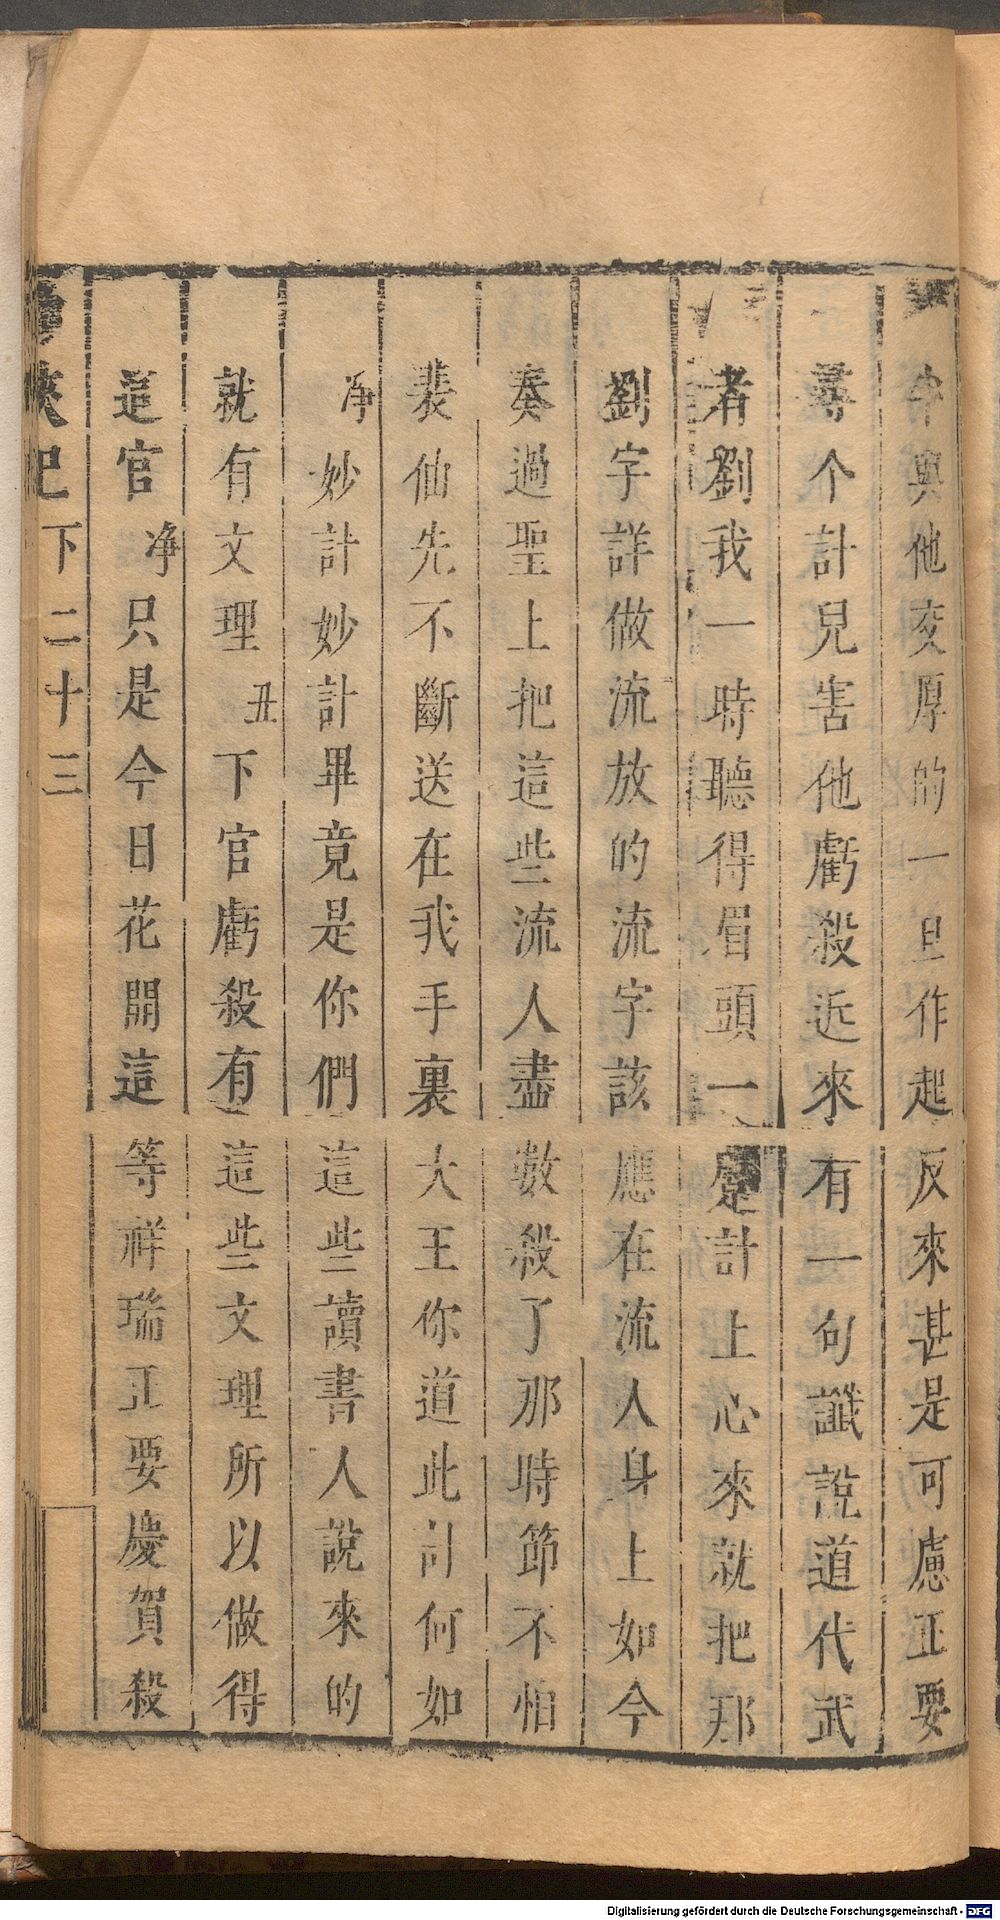 與他交厚的一旦作起反來甚是可慮正要
尋个計兒害他虧殺近來有一句讖說道代武
者劉我一時聽得眉頭一蹙計上心來就把那
劉字詳做流放的流字該應在流人身上如今
奏過聖上把這些流人盡數殺了那時節不怕
裴仙先不斷送在我手裏大王你道此計何如
净妙計妙計畢竟是你們這些讀書人說來的
就有文理丑下官虧殺有這些文理所以做得
這官净只是今日花開這等祥瑞正要慶賀殺
俠記 下二十三
Digitalisierung gefördert durch die Deutsche Forschungsgemeinschaft - DFG